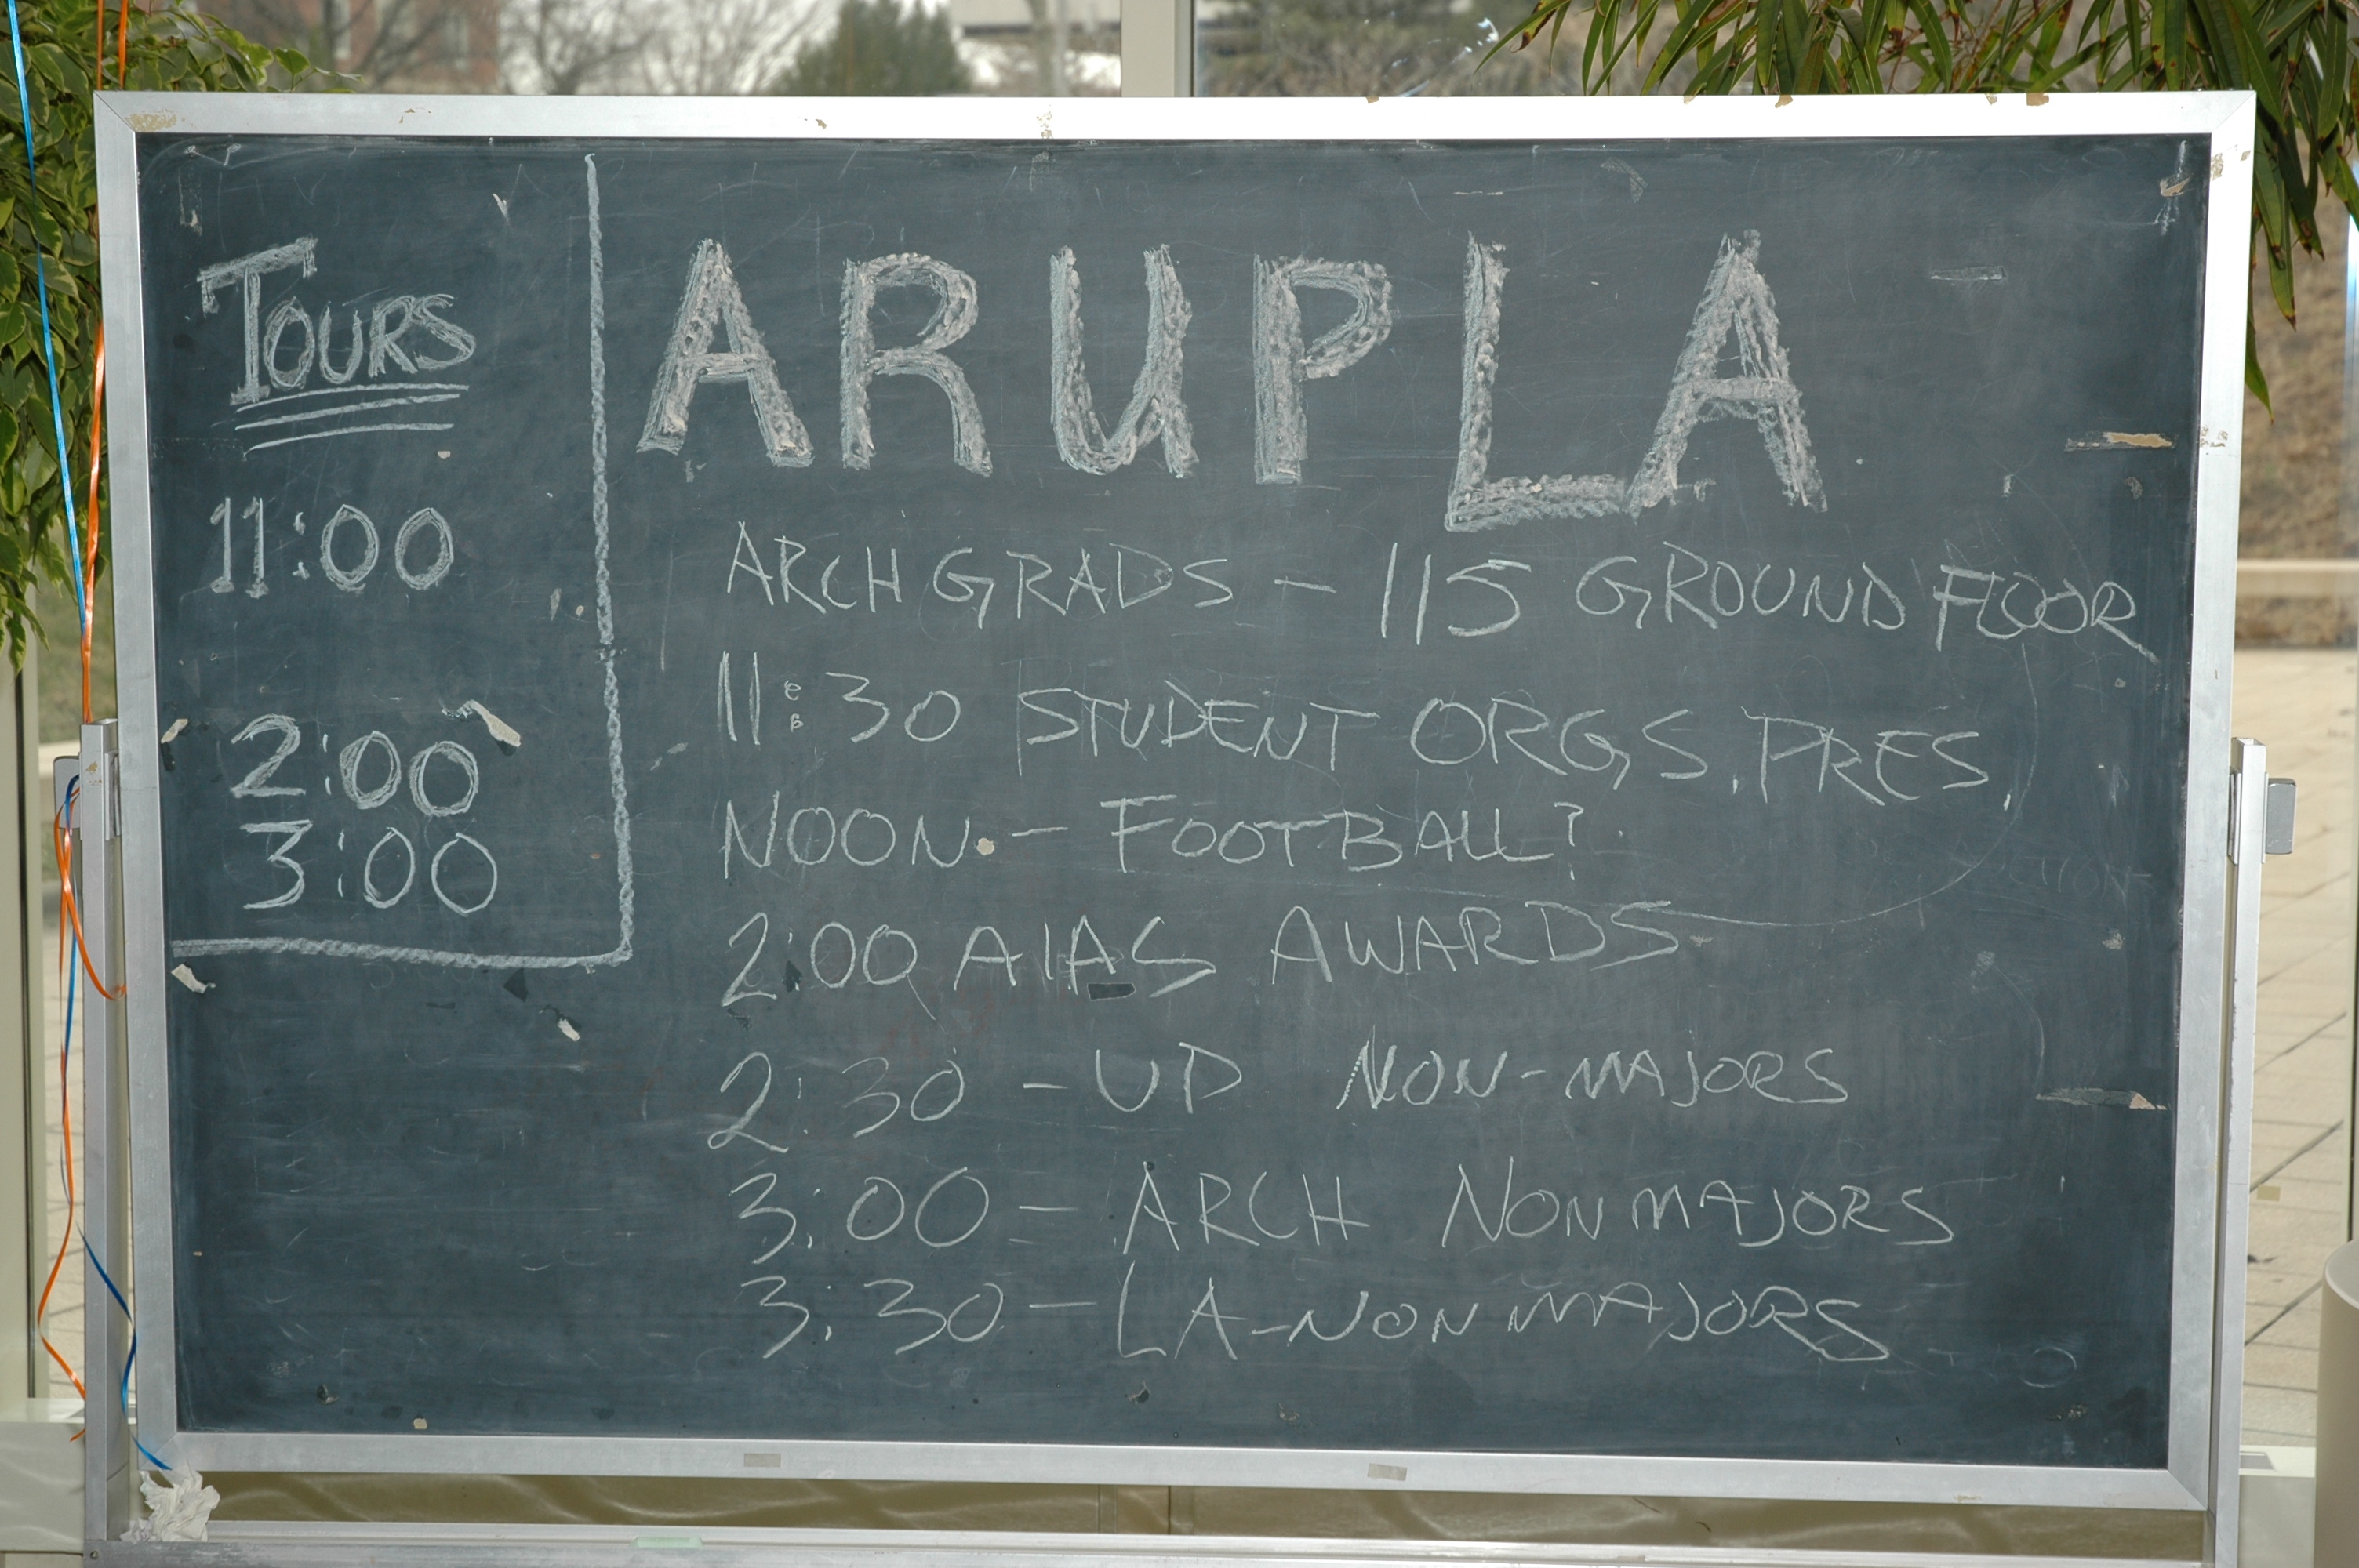 TOURS
11:00
2:00
3:00
ARUPLA
ARCH GRADS - 115 GROUND FLOOR
11:30 STUDENT ORGS. PRES.
NOON - FOOTBALL?
2:00 AIAS AWARDS
2:30 - UP NON-MAJORS
3:00 - ARCH NONMAJORS
3:30 - LA-NONMAJORS